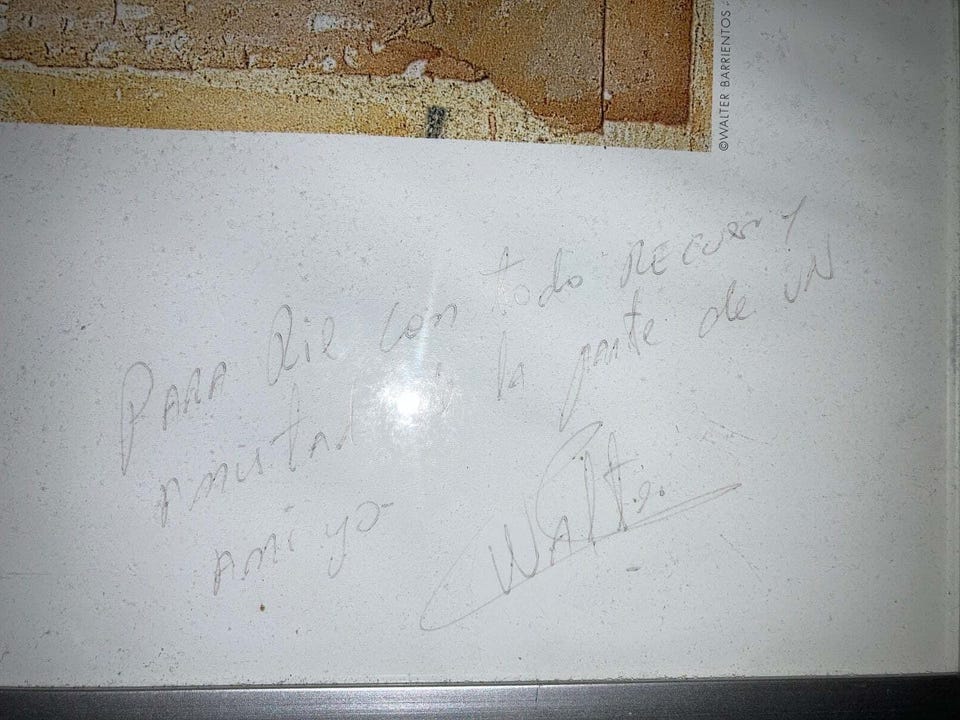 ©WALTER BARRIENTOS
PARA con todo RECUER y
amistad la parte de UN
amigo
Walter